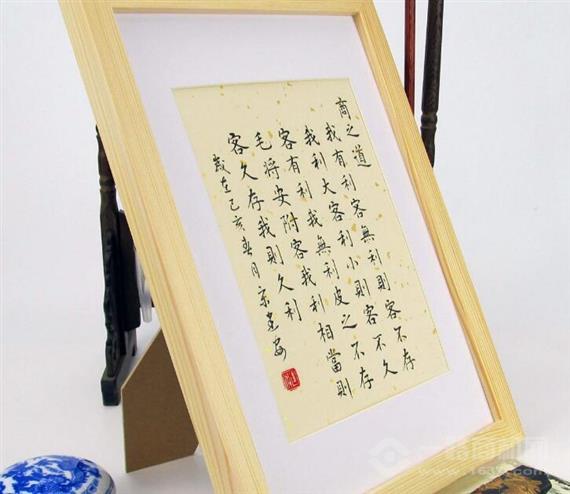 商之道
我有利客無利則客不存
我利大客利小則客不久
客有利我無利皮之不存
毛將安附客我利相當則
客久存我則久利
歲在己亥春月